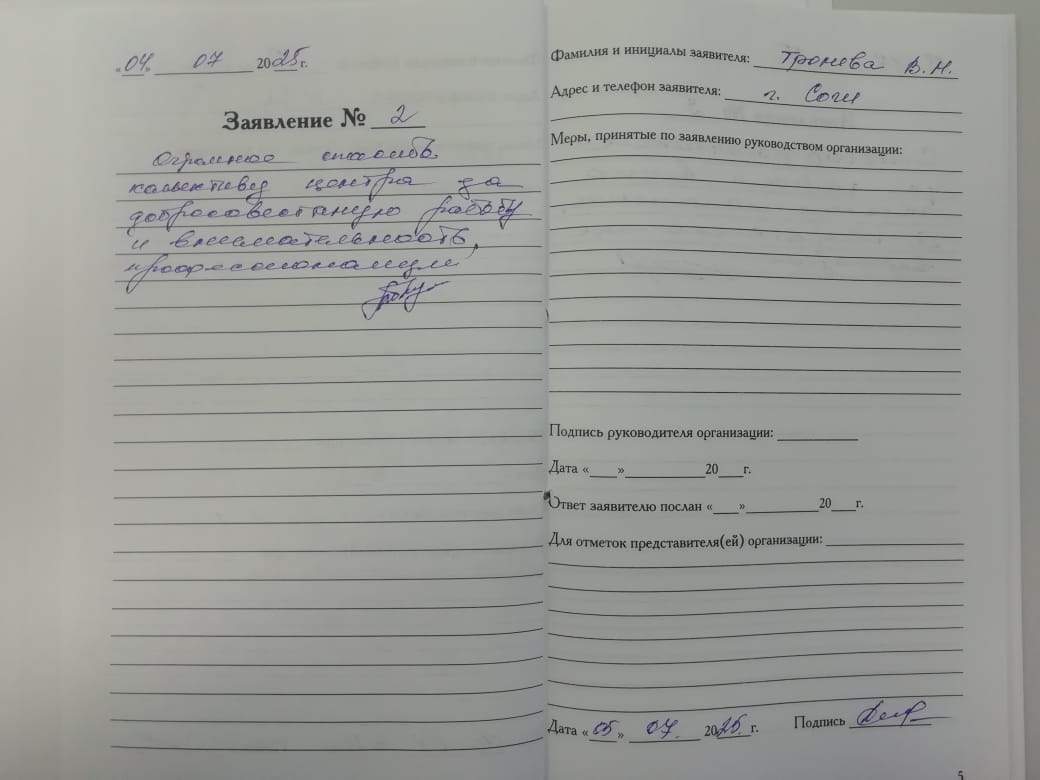 «04» 07 2025 г.
Заявление № 2
Огромное спасибо
коллективу центра за
добросовестную работу
и внимательность,
профессионализм
Фамилия и инициалы заявителя: Тронева В. Н.
Адрес и телефон заявителя: г. Сочи
Меры, принятые по заявлению руководством организации:
Подпись руководителя организации:
Дата «__»________20__г.
Ответ заявителю послан «__»________20__г.
Для отметок представителя(ей) организации:
Дата «05» 07. 2025. г. Подпись
5